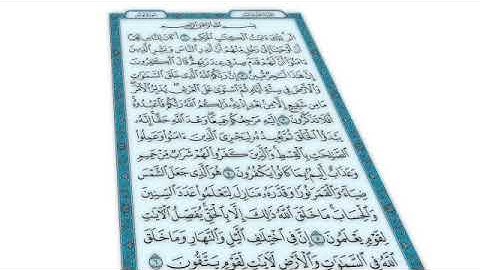 بِسْمِ ٱللَّهِ ٱلرَّحْمَٰنِ ٱلرَّحِيمِ
الٓر تِلْكَ ءَايَٰتُ ٱلْكِتَٰبِ ٱلْحَكِيمِ ١ أَكَانَ لِلنَّاسِ عَجَبًا
أَنْ أَوْحَيْنَآ إِلَىٰ رَجُلٍ مِّنْهُمْ أَنْ أَنذِرِ ٱلنَّاسَ وَبَشِّرِ ٱلَّذِينَ
ءَامَنُوٓا۟ أَنَّ لَهُمْ قَدَمَ صِدْقٍ عِندَ رَبِّهِمْ قَالَ ٱلْكَٰفِرُونَ
إِنَّ هَٰذَا لَسَٰحِرٌ مُّبِينٌ ٢ إِنَّ رَبَّكُمُ ٱللَّهُ ٱلَّذِى خَلَقَ ٱلسَّمَٰوَٰتِ
وَٱلْأَرْضَ فِى سِتَّةِ أَيَّامٍ ثُمَّ ٱسْتَوَىٰ عَلَى ٱلْعَرْشِ يُدَبِّرُ ٱلْأَمْرَ
مَا مِن شَفِيعٍ إِلَّا مِنۢ بَعْدِ إِذْنِهِۦ ذَٰلِكُمُ ٱللَّهُ رَبُّكُمْ فَٱعْبُدُوهُ
أَفَلَا تَذَكَّرُونَ ٣ إِلَيْهِ مَرْجِعُكُمْ جَمِيعًا وَعْدَ ٱللَّهِ حَقًّا إِنَّهُۥ
يَبْدَؤُا۟ ٱلْخَلْقَ ثُمَّ يُعِيدُهُۥ لِيَجْزِىَ ٱلَّذِينَ ءَامَنُوا۟ وَعَمِلُوا۟
ٱلصَّٰلِحَٰتِ بِٱلْقِسْطِ وَٱلَّذِينَ كَفَرُوا۟ لَهُمْ شَرَابٌ مِّنْ حَمِيمٍ
وَعَذَابٌ أَلِيمٌۢ بِمَا كَانُوا۟ يَكْفُرُونَ ٤ هُوَ ٱلَّذِى جَعَلَ ٱلشَّمْسَ
ضِيَآءً وَٱلْقَمَرَ نُورًا وَقَدَّرَهُۥ مَنَازِلَ لِتَعْلَمُوا۟ عَدَدَ ٱلسِّنِينَ
وَٱلْحِسَابَ مَا خَلَقَ ٱللَّهُ ذَٰلِكَ إِلَّا بِٱلْحَقِّ يُفَصِّلُ ٱلْءَايَٰتِ
لِقَوْمٍ يَعْلَمُونَ ٥ إِنَّ فِى ٱخْتِلَٰفِ ٱلَّيْلِ وَٱلنَّهَارِ وَمَا خَلَقَ
ٱللَّهُ فِى ٱلسَّمَٰوَٰتِ وَٱلْأَرْضِ لَءَايَٰتٍ لِّقَوْمٍ يَتَّقُونَ ٦